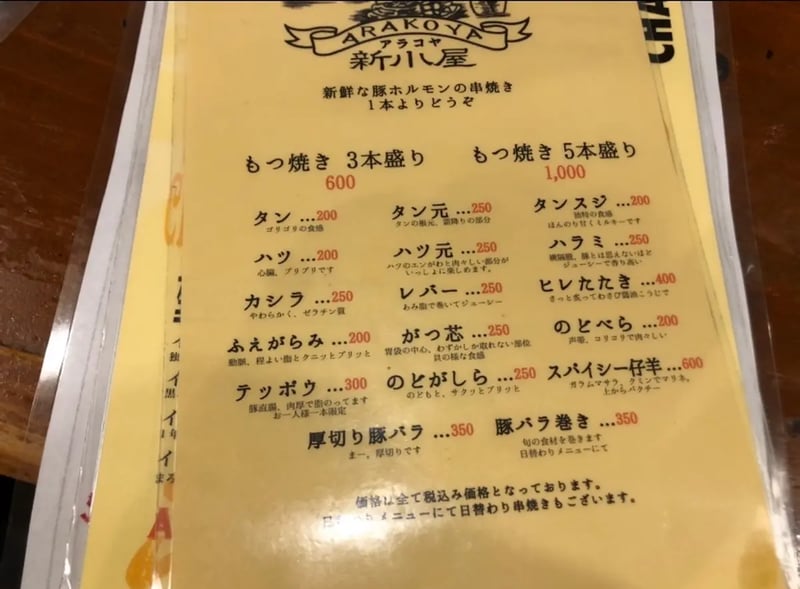 ARAKOYA
アラコヤ
新小屋
新鮮な豚ホルモンの串焼き
1本よりどうぞ
もつ焼き 3本盛り
600
もつ焼き 5本盛り
1,000
タン …200
ゴリゴリの食感
タン元 …250
タンの根元、霜降りの部分
タンスジ …200
独特の食感
ほんのり甘くミルキーです
ハツ …200
心臓、プリプリです
ハツ元 …250
ハツのエンがわと肉々しい部分が
いっしょに楽しめます。
ハラミ …250
横隔膜、豚とは思えないほど
ジューシーで香り高い
カシラ …250
やわらかく、ゼラチン質
レバー …250
あみ脂で巻いてジューシー
ヒレたたき …400
さっと炙ってわさび醤油こうじで
ふえがらみ …200
動脈、程よい脂とクニッとプリッと
がつ芯 …250
胃袋の中心、わずかしか取れない部位
貝の様な食感
のどべら …200
声帯、コリコリで肉々しい
テッポウ …300
豚直腸、肉厚で脂のってます
お一人様一本限定
のどがしら …250
のどもと、サクッとプリッと
スパイシー仔羊 …600
ガラムマサラ、クミンでマリネ。
上からパクチー
厚切り豚バラ …350
まー。厚切りです
豚バラ巻き …350
旬の食材を巻きます
日替わりメニューにて
価格は全て税込み価格となっております。
メニューにて日替わり串焼きもございます。
CHA